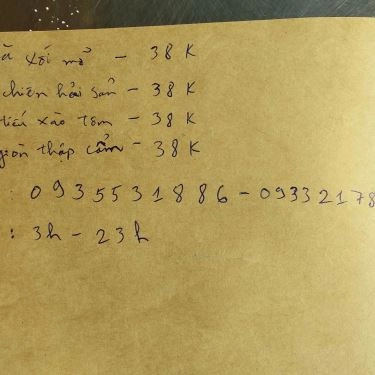 xối mỡ - 38 K
chiên hải sản - 38 K
xào tôm - 38 K
giòn thập cẩm - 38 K
: 0935531886 - 09332178
: 3h - 23h